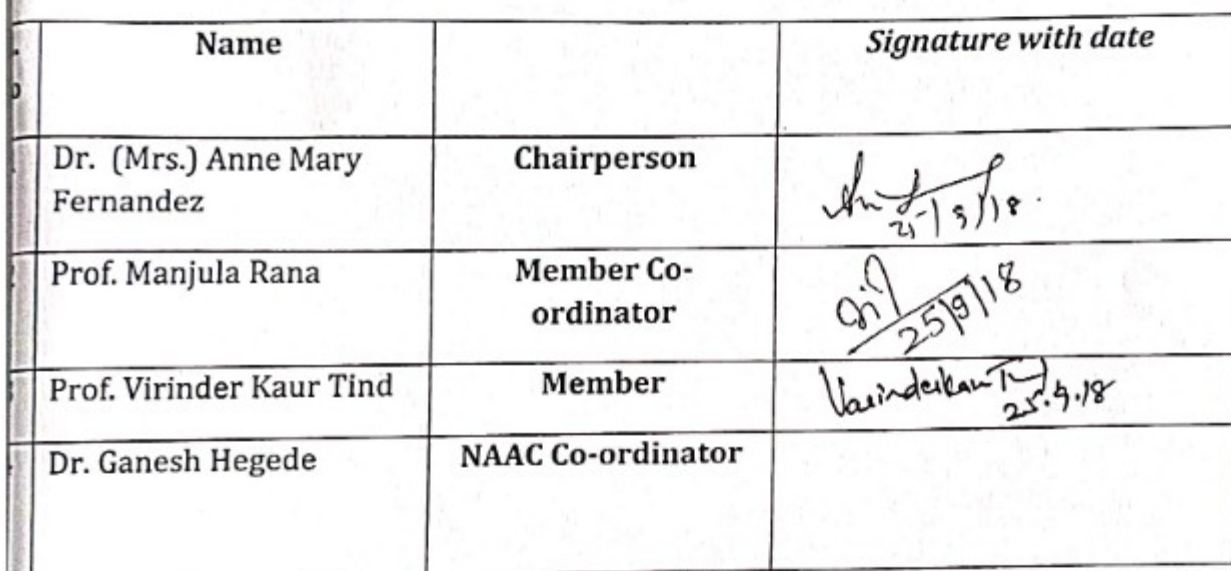 Name
Signature with date
Dr. (Mrs.) Anne Mary
Fernandez
Chairperson
25/9/18.
Prof. Manjula Rana
Member Co-
ordinator
25/9/18
Prof. Virinder Kaur Tind
Member
25.9.18
Dr. Ganesh Hegede
NAAC Co-ordinator